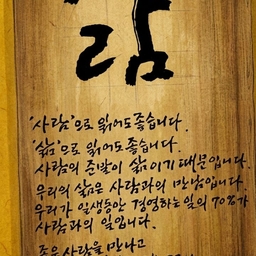 '사람'으로 읽어도 좋습니다.
'삶'으로 읽어도 좋습니다.
사람의 준말이 삶이기 때문입니다.
우리의 삶은 사람과의 만남입니다.
우리가 일생동안 경영하는 일의 70%가
사람과의 일입니다.
좋은 사람을 만나고